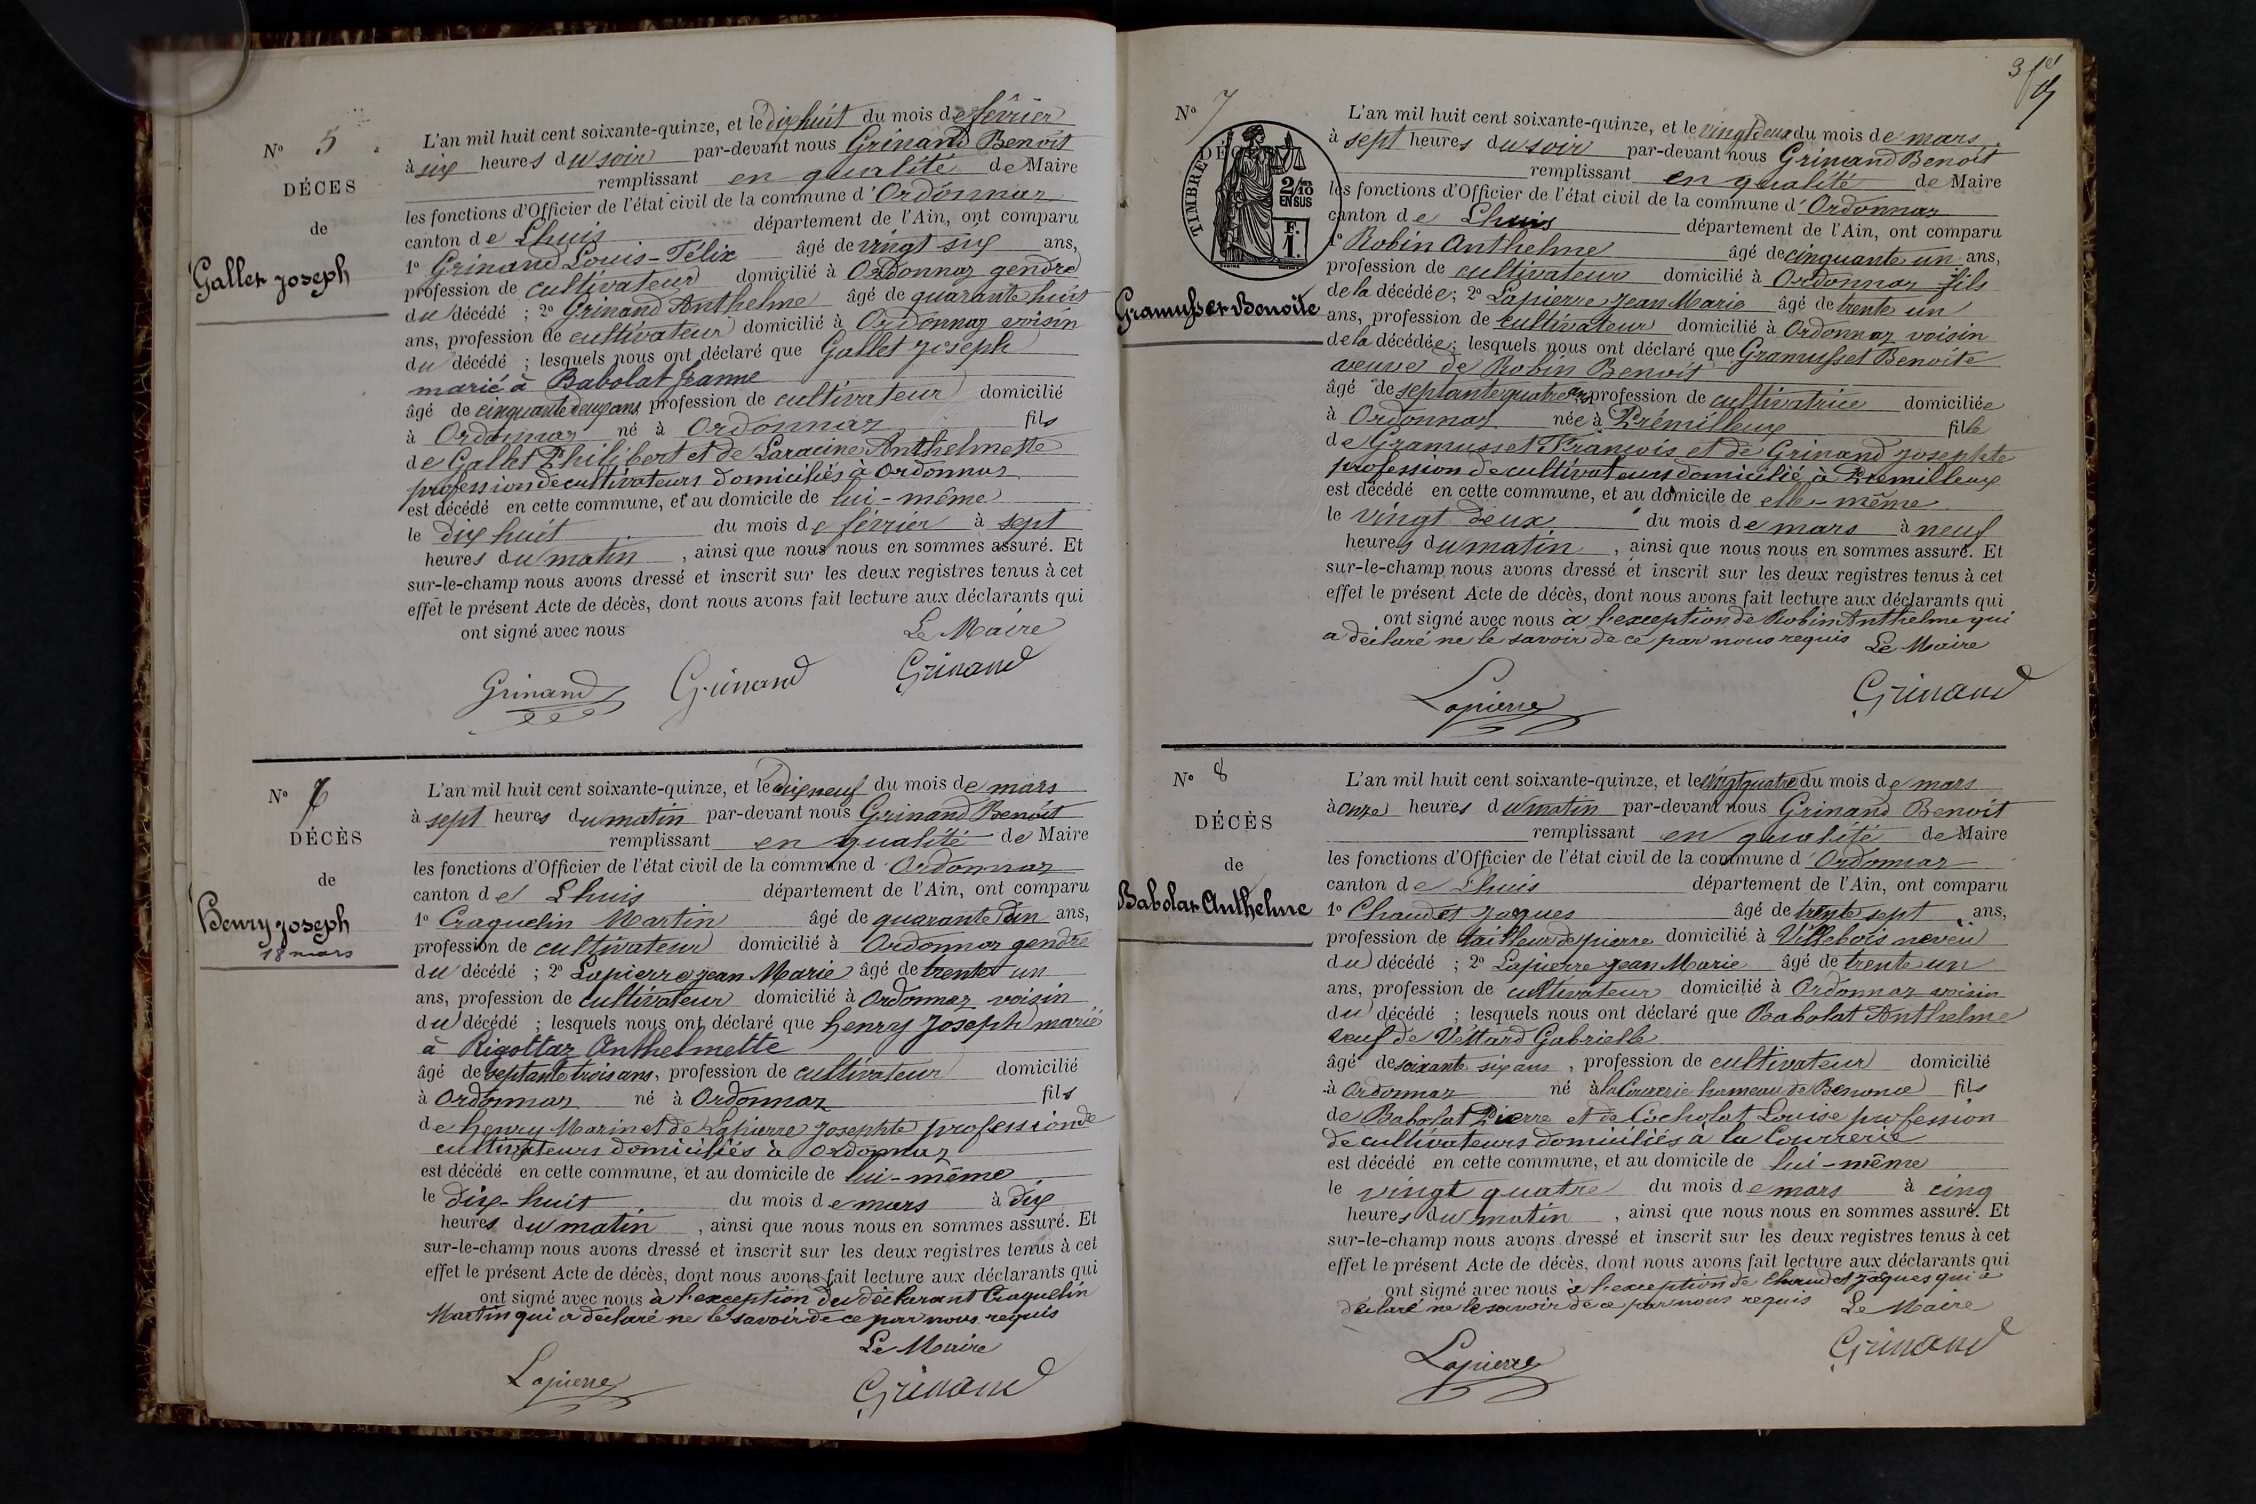 N° 5
DÉCES
de
Gallet Joseph
L'an mil huit cent soixante-quinze, et le dix huit du mois de février
à six heures du soir par-devant nous Grinand Benoît
remplissant en qualité de Maire
les fonctions d'Officier de l'état civil de la commune d'Ordonnaz
canton de Lhuis département de l'Ain, ont comparu
1° Grinand Louis-Félix âgé de vingt six ans,
profession de cultivateur domicilié à Ordonnaz gendre
du décédé ; 2° Grinand Anthelme âgé de quarante huit
ans, profession de cultivateur domicilié à Ordonnaz voisin
du décédé ; lesquels nous ont déclaré que Gallet Joseph
marié à Babolat Jeanne
âgé de cinquante deux ans profession de cultivateur domicilié
à Ordonnaz né à Ordonnaz fils
de Gallet Philibert et de Laracine Anthelmette
profession de cultivateurs domiciliés à Ordonnaz
est décédé en cette commune, et au domicile de lui-même
le dix huit du mois de février à sept
heures du matin , ainsi que nous nous en sommes assuré. Et
sur-le-champ nous avons dressé et inscrit sur les deux registres tenus à cet
effet le présent Acte de décès, dont nous avons fait lecture aux déclarants qui
ont signé avec nous
Le Maire
Grinand Grinand Grinand
N° 6
DÉCÈS
de
Henry Joseph
18 mars
L'an mil huit cent soixante-quinze, et le dix neuf du mois de mars
à sept heures du matin par-devant nous Grinand Benoît
remplissant en qualité de Maire
les fonctions d'Officier de l'état civil de la commune d'Ordonnaz
canton de Lhuis département de l'Ain, ont comparu
1° Craquelin Martin âgé de quarante un ans,
profession de cultivateur domicilié à Ordonnaz gendre
du décédé ; 2° Lapierre Jean Marie âgé de trente un
ans, profession de cultivateur domicilié à Ordonnaz voisin
du décédé ; lesquels nous ont déclaré que henry Joseph marié
à Rigottaz Anthelmette
âgé de septante trois ans, profession de cultivateur domicilié
à Ordonnaz né à Ordonnaz fils
de henry Marin et de Lapierre Josephte profession de
cultivateurs domiciliés à Ordonnaz
est décédé en cette commune, et au domicile de lui-même
le dix-huit du mois de mars à dix
heures du matin , ainsi que nous nous en sommes assuré. Et
sur-le-champ nous avons dressé et inscrit sur les deux registres tenus à cet
effet le présent Acte de décès, dont nous avons fait lecture aux déclarants qui
ont signé avec nous à l'exception du déclarant Craquelin
Martin qui a déclaré ne le savoir de ce par nous requis
Le Maire
Lapierre Grinand
3
N° 7
DÉC
TIMBRE
2/10
EN SUS
F.
1.
Gramusset Benoite
L'an mil huit cent soixante-quinze, et le vingt deux du mois de mars
à sept heures du soir par-devant nous Grinand Benoît
remplissant en qualité de Maire
les fonctions d'Officier de l'état civil de la commune d'Ordonnaz
canton de Lhuis département de l'Ain, ont comparu
1° Robin Anthelme âgé de cinquante un ans,
profession de cultivateur domicilié à Ordonnaz fils
de la décédée; 2° Lapierre Jean Marie âgé de trente un
ans, profession de cultivateur domicilié à Ordonnaz voisin
de la décédée; lesquels nous ont déclaré que Gramusset Benoite
veuve de Robin Benoît
âgé de septante quatre ans profession de cultivatrice domiciliée
à Ordonnaz née à Prémillieux fille
de Gramusset François et de Grinand Josephte
profession de cultivateurs domicilié à Premillieux
est décédé en cette commune, et au domicile de elle-même
le vingt deux du mois de mars à neuf
heures du matin , ainsi que nous nous en sommes assuré. Et
sur-le-champ nous avons dressé et inscrit sur les deux registres tenus à cet
effet le présent Acte de décès, dont nous avons fait lecture aux déclarants qui
ont signé avec nous à l'exception de Robin Anthelme qui
a déclaré ne le savoir de ce par nous requis Le Maire
Lapierre Grinand
N° 8
DÉCÈS
de
Babolat Anthelme
L'an mil huit cent soixante-quinze, et le vingt quatre du mois de mars
à onze heures du matin par-devant nous Grinand Benoît
remplissant en qualité de Maire
les fonctions d'Officier de l'état civil de la commune d'Ordonnaz
canton de Lhuis département de l'Ain, ont comparu
1° Chaudet Jaques âgé de trente sept ans,
profession de tailleur de pierre domicilié à Villebois neveu
du décédé ; 2° Lapierre Jean Marie âgé de trente un
ans, profession de cultivateur domicilié à Ordonnaz voisin
du décédé ; lesquels nous ont déclaré que Babolat Anthelme
veuf de Vettard Gabrielle
âgé de soixante six ans , profession de cultivateur domicilié
à Ordonnaz né à la Courrerie hameau de Benonce fils
de Babolat Pierre et de Cocholat Louise profession
de cultivateurs domiciliés à la Courrerie
est décédé en cette commune, et au domicile de lui-même
le vingt quatre du mois de mars à cinq
heures du matin , ainsi que nous nous en sommes assuré. Et
sur-le-champ nous avons dressé et inscrit sur les deux registres tenus à cet
effet le présent Acte de décès, dont nous avons fait lecture aux déclarants qui
ont signé avec nous à l'exception de Chaudet Jaques qui a
déclaré ne le savoir de ce par nous requis Le Maire
Lapierre Grinand